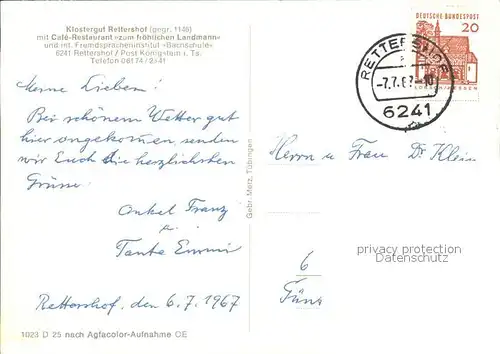 Klostergut Rettershof (gegr. 1146)
mit Café-Restaurant »zum fröhlichen Landmann«
und int. Fremdspracheninstitut «Dachschule»
6241 Rettershof / Post Königstein i. Ts.
Telefon 06174 / 2341
Meine Lieben!
Bei schönem Wetter gut
hier angekommen, senden
wir Euch die herzlichsten
Grüsse
Onkel Franz
u.
Tante Emmi
Rettershof, den 6.7.1967
1023 D 25 nach Agfacolor-Aufnahme CE
Gebr. Metz, Tübingen
RETTERSHOF
-7.7.67-10
6241
DEUTSCHE BUNDESPOST
20
LORSCH/HESSEN
Herrn u Frau Dr Klein
6
privacy protection
Datenschutz